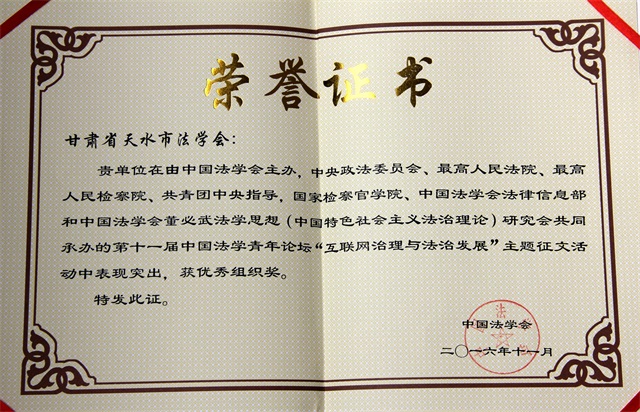 荣誉证书
甘肃省天水市法学会：
贵单位在由中国法学会主办，中央政法委员会、最高人民法院、最高
人民检察院、共青团中央指导，国家检察官学院、中国法学会法律信息部
和中国法学会董必武法学思想（中国特色社会主义法治理论）研究会共同
承办的第十一届中国法学青年论坛“互联网治理与法治发展”主题征文活
动中表现突出，获优秀组织奖。
特发此证。
中国法学会
二〇一六年十一月